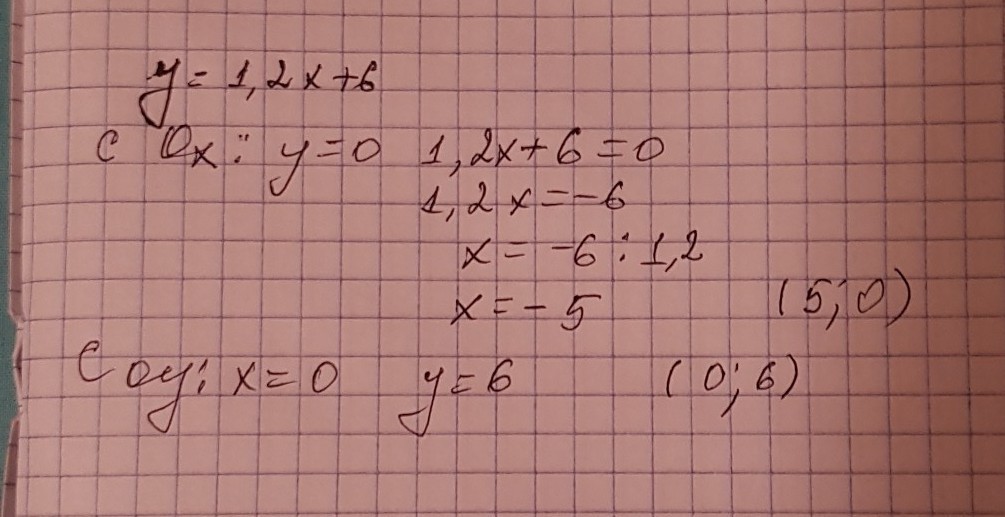 y = 1,2x+6
с Ox: y=0 1,2x+6=0
1,2x=-6
x= -6 : 1,2
x=-5 (5;0)
С oy: x=0 y=6 (0;6)